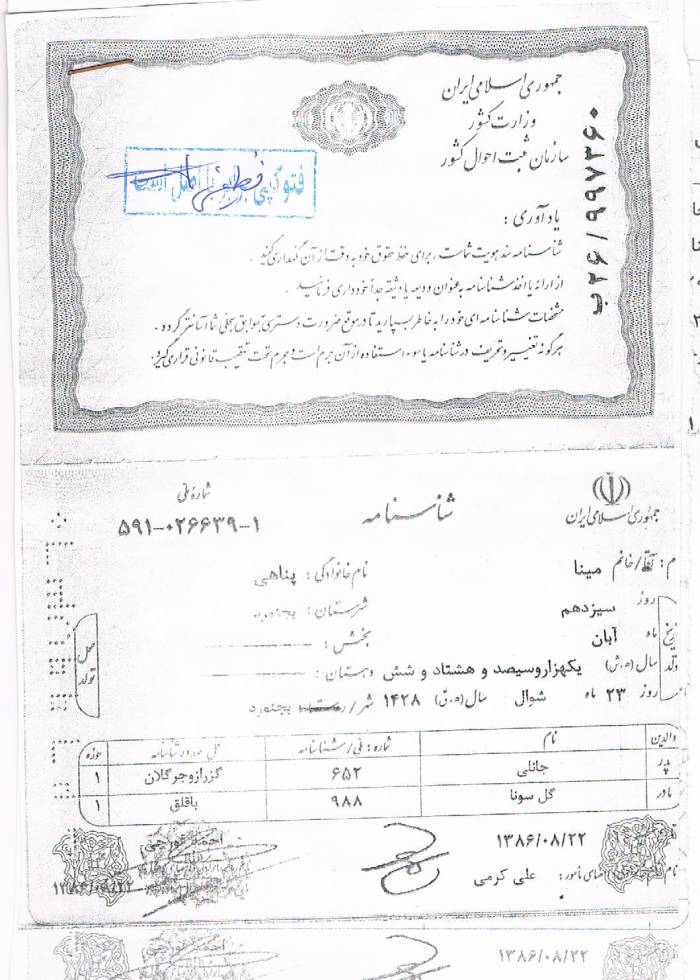 جمهوری اسلامی ایران
وزارت کشور
سازمان ثبت احوال کشور
ب۲۶/۹۹۷۳۶۰
یادآوری :
شناسنامه سند هویت شماست ، برای حفظ حقوق خود به دقت از آن نگهداری کنید .
از ارائه یا اخذ شناسنامه به عنوان ودیعه یا وثیقه جداً خودداری فرمائید .
مشخصات شناسنامه ای خود را به خاطر بسپارید تا در موقع ضرورت دسترسی به سوابق سجلی شما آسانتر گردد .
هرگونه تغییر و تحریف در شناسنامه یا سوء استفاده از آن جرم است و مجرم تحت تعقیب قانونی قرار می گیرد.
جمهوری اسلامی ایران
شناسنامه
شماره ملی
۵۹۱-۰۲۶۶۳۹-۱
م : آقا/خانم مینا نام خانوادگی : پناهی
روز سیزدهم شهرستان : بجنورد
ماه آبان بخش :
سال (ه.ش) یکهزاروسیصد و هشتاد و شش دهستان :
روز ۲۳ ماه شوال سال (ه.ق) ۱۴۲۸ شهر / بجنورد
محل تولد
والدین نام شماره : ملی / شناسنامه محل صدور شناسنامه حوزه
پدر جانلی ۶۵۲ گزرازوجرگلان ۱
مادر گل سونا ۹۸۸ باقلق ۱
۱۳۸۶/۰۸/۲۲
علی کرمی
۱۳۸۶/۰۸/۲۲
۱۳۸۶/۰۸/۲۲